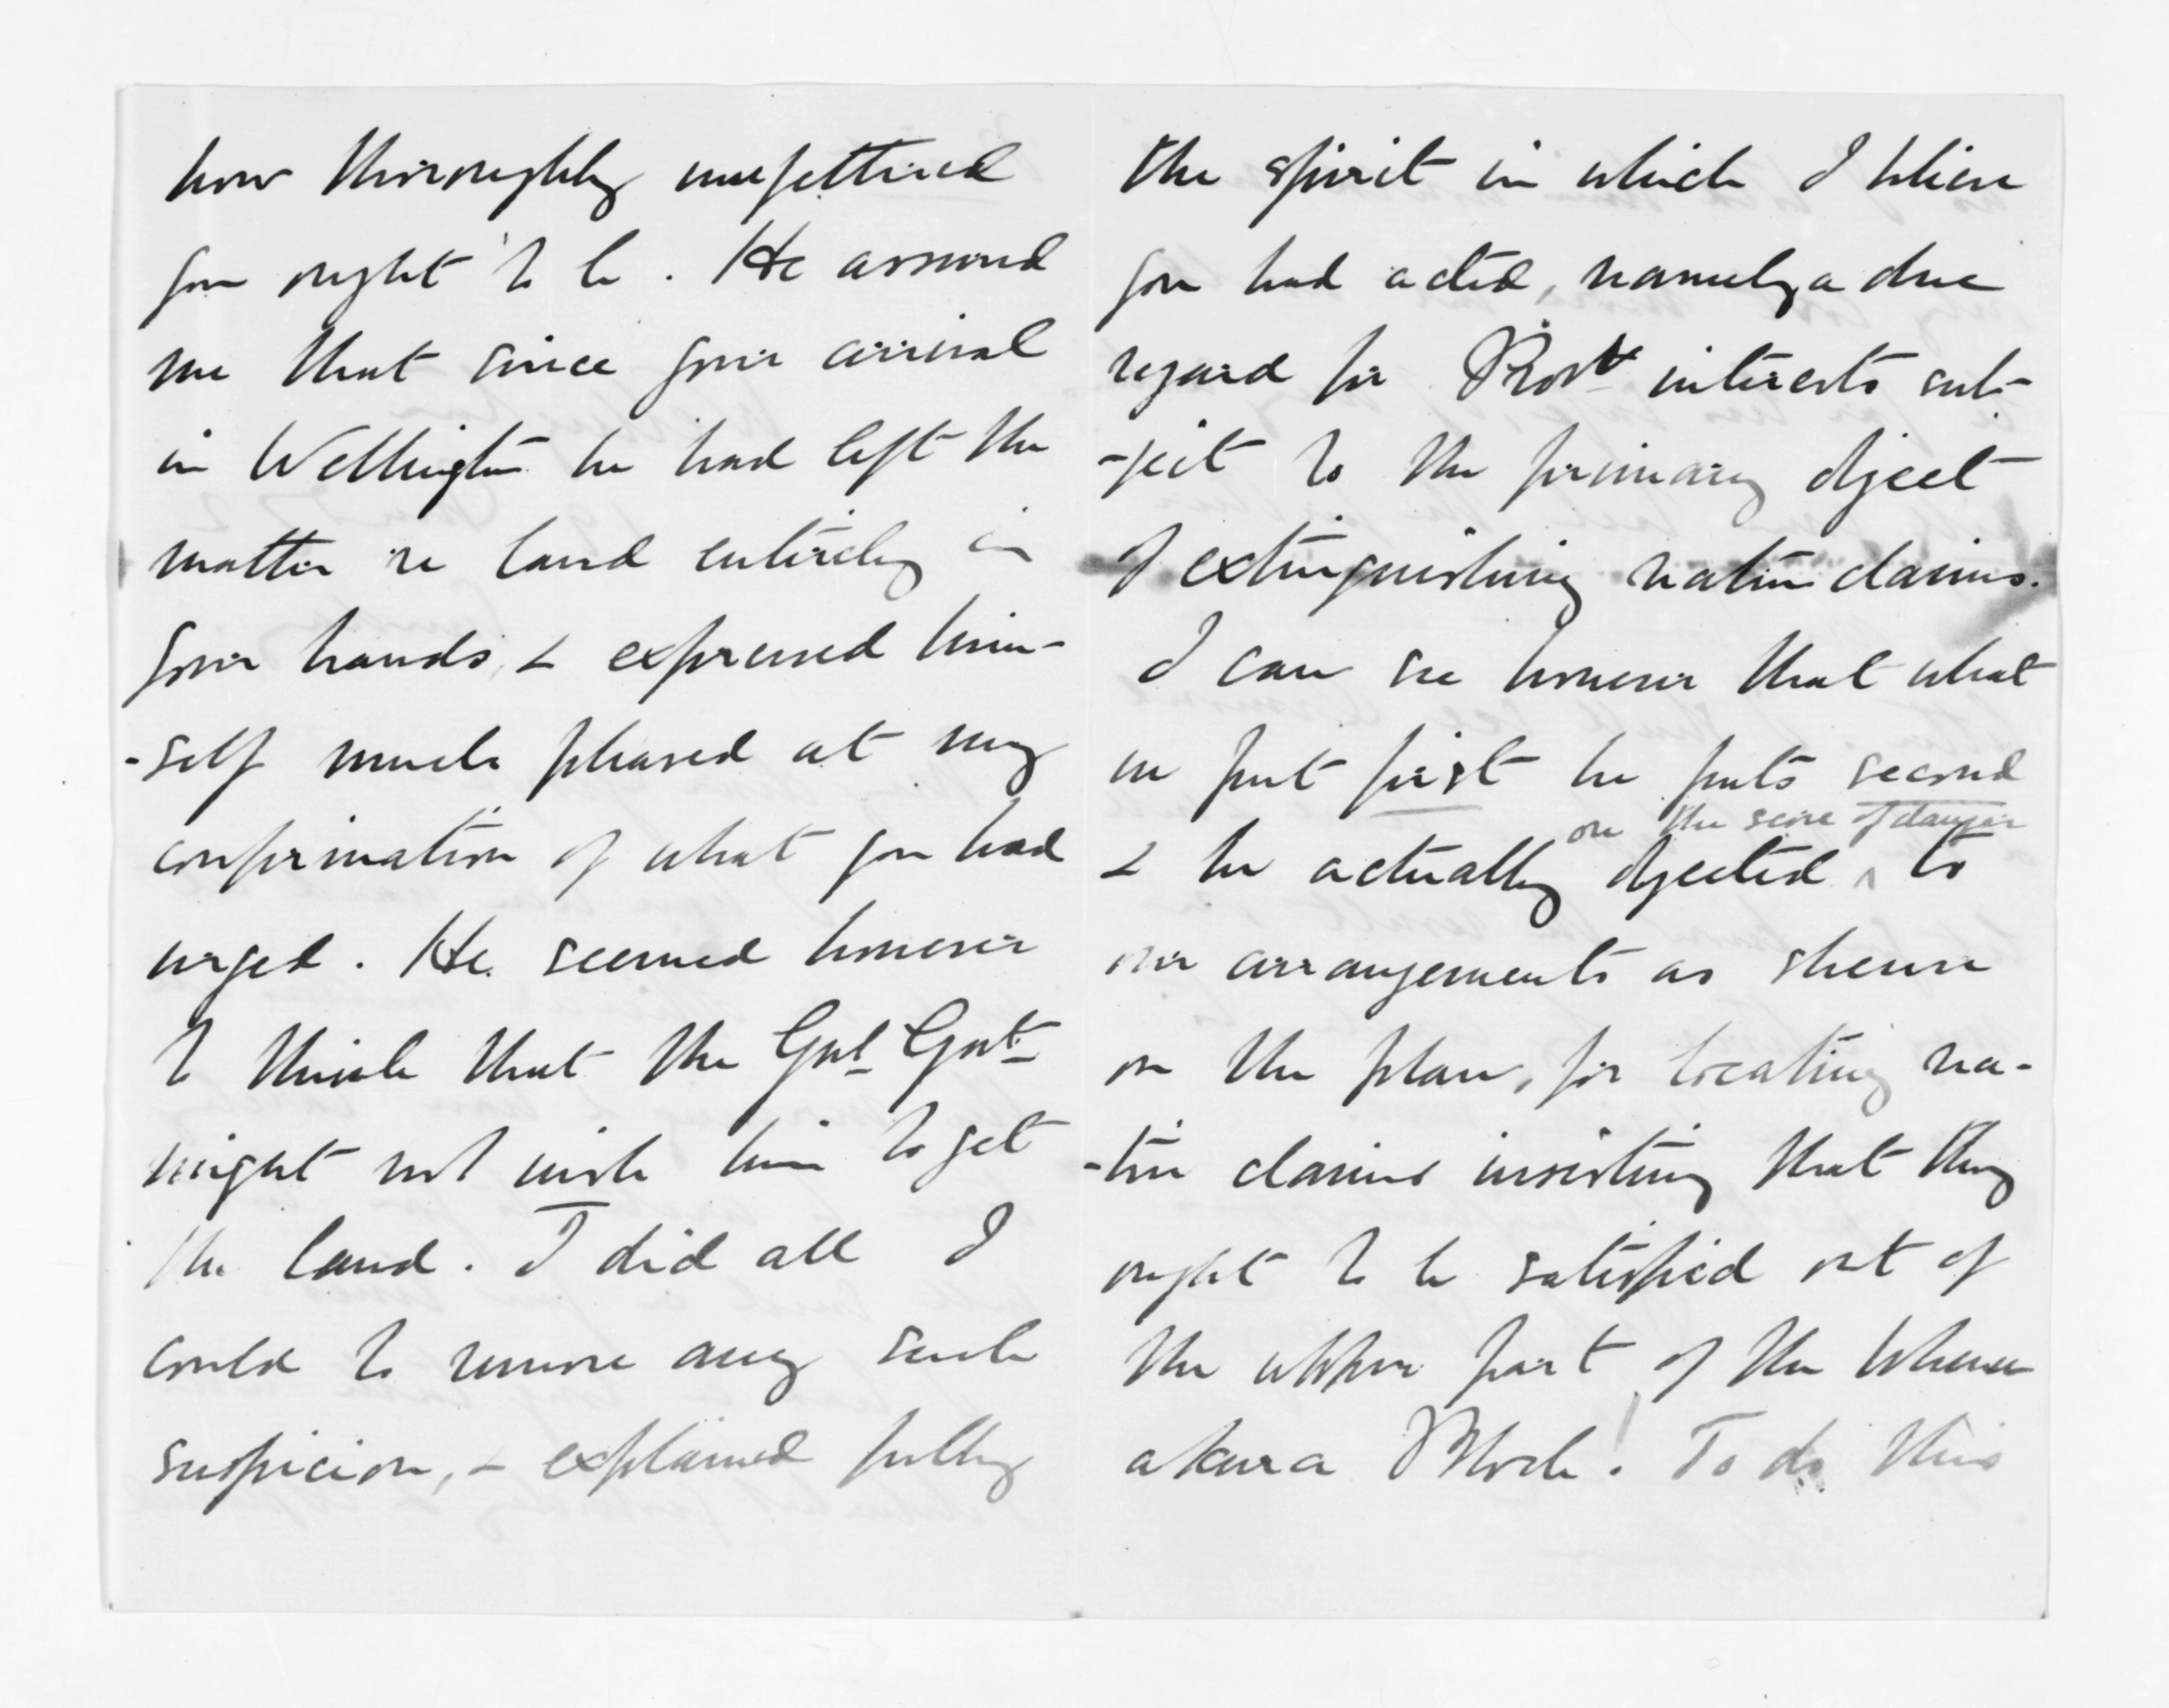 how thoroughly unfettered
you ought to be. He assured
me that since your arrival
in Wellington he had left the
matter re land entirely in
your hands, & expressed him-
-self much pleased at my
confirmation of what you had
urged. He seemed however
to think that the Genl Govt
might not wish him to get
the land. I did all I
could to remove any such
suspicion, & explained fully
the spirit in which I believe
you had acted, namely a due
regard for Provl interests sub-
-ject to the primary object
of extinguishing native claims.
I can see however that what
we put first he puts second
on the score of danger
& he actually objected ^ to
our arrangements as shewn
on the plan, for locating na-
-tive claims insisting that they
ought to be satisfied out of
the upper part of the Whena
akura Block! To do this